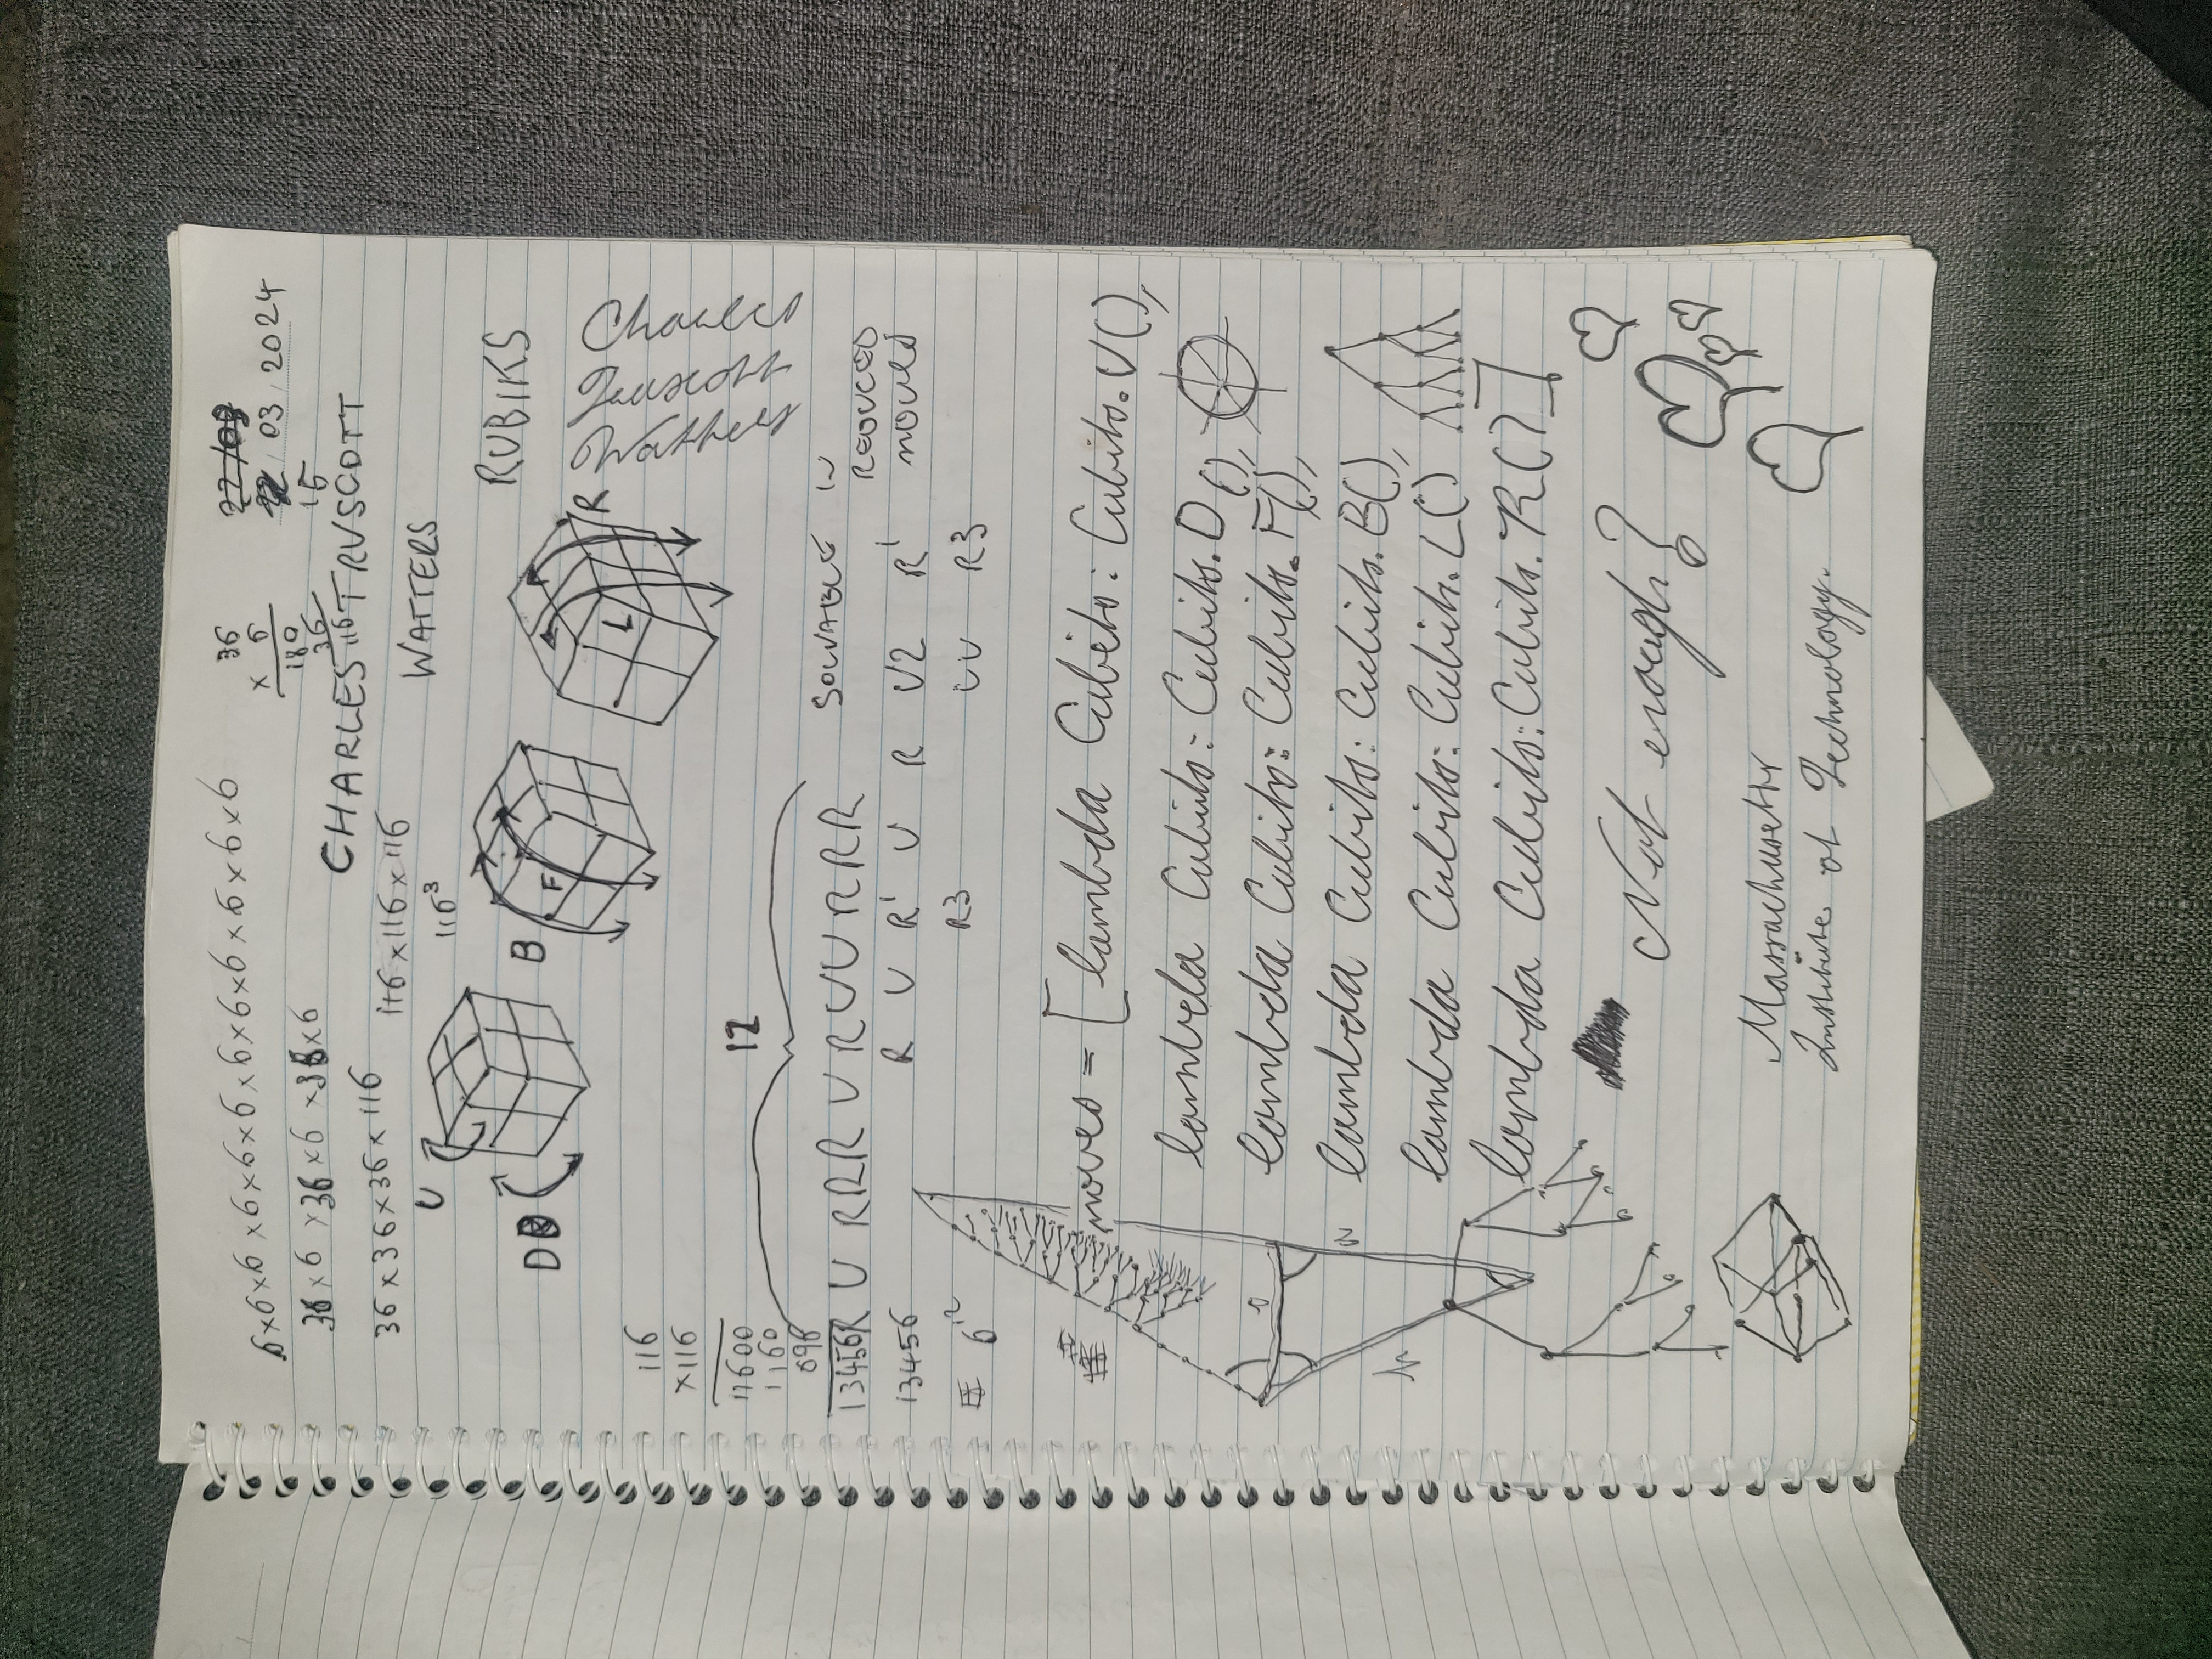 6×6×6×6×6×6×6×6×6×6×6×6
36×6×36×6×36×6
36×36×36×116
116×116×116
116³
36
× 6
180
36
116
22/03
03, 2024
15
CHARLES TRUSCOTT
WATTERS
RUBIKS
Charles
Truscott
Watters
U
D
B
F
L
R
116
×116
11600
1160
696
13456
13456
6¹²
12
R U RRR U R UU RRR
SOLVABLE IN
REDUCED
MOVES
R U R' U R U2 R'
R3 UU R3
moves = [lambda Cubits: Cubits.U(),
lambda Cubits: Cubits.D(),
lambda Cubits: Cubits.F(),
lambda Cubits: Cubits.B(),
lambda Cubits: Cubits.L()
lambda Cubits: Cubits.R()]
o
a
h
Not enough?
Massachusetts
Institute of Technology.